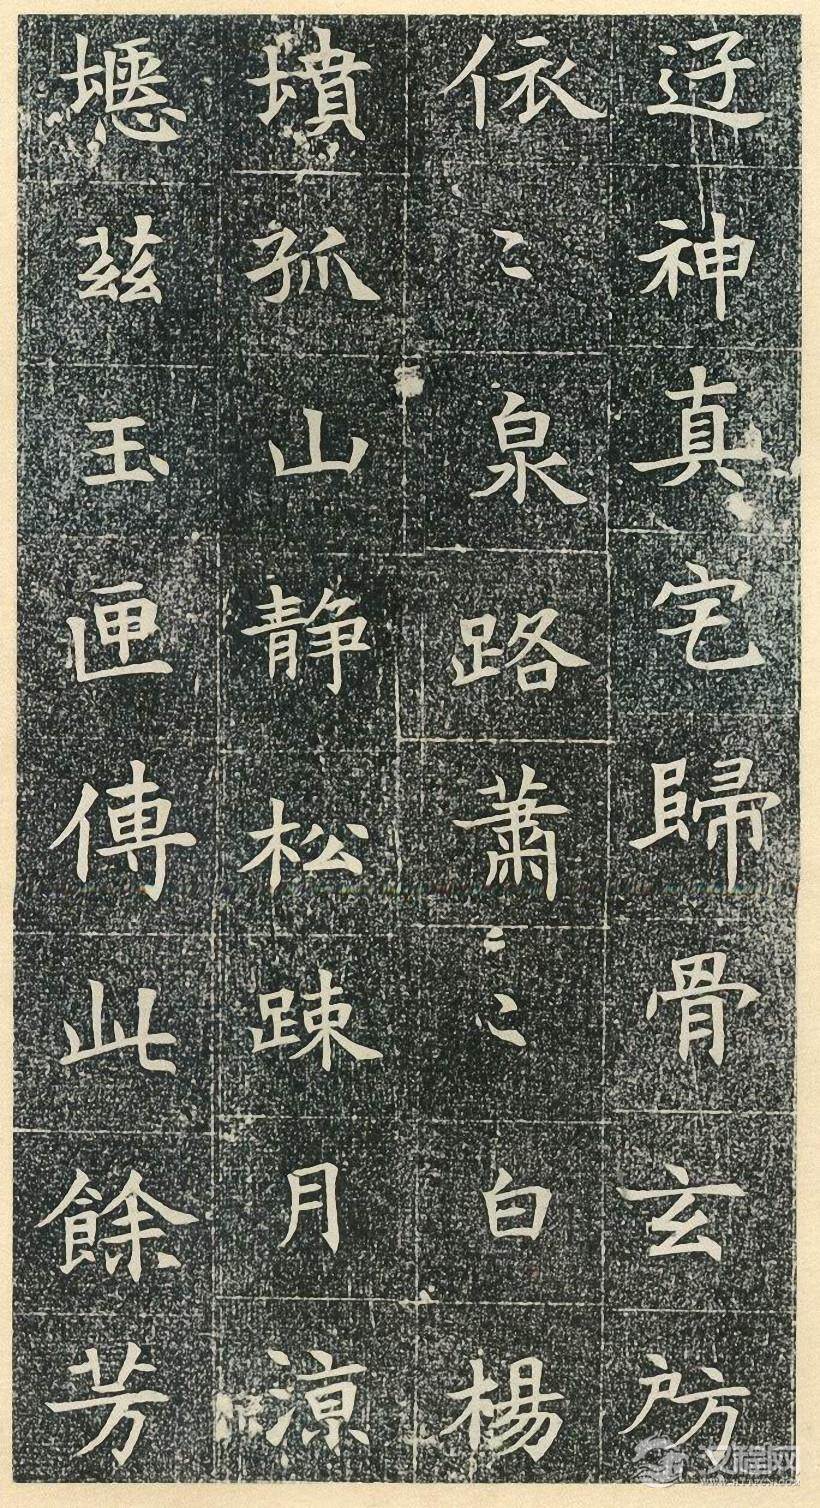 迓神真宅歸骨玄房
依〻泉路蕭〻白楊
墳孤山静松踈月涼
茲玉匣傳此餘芳